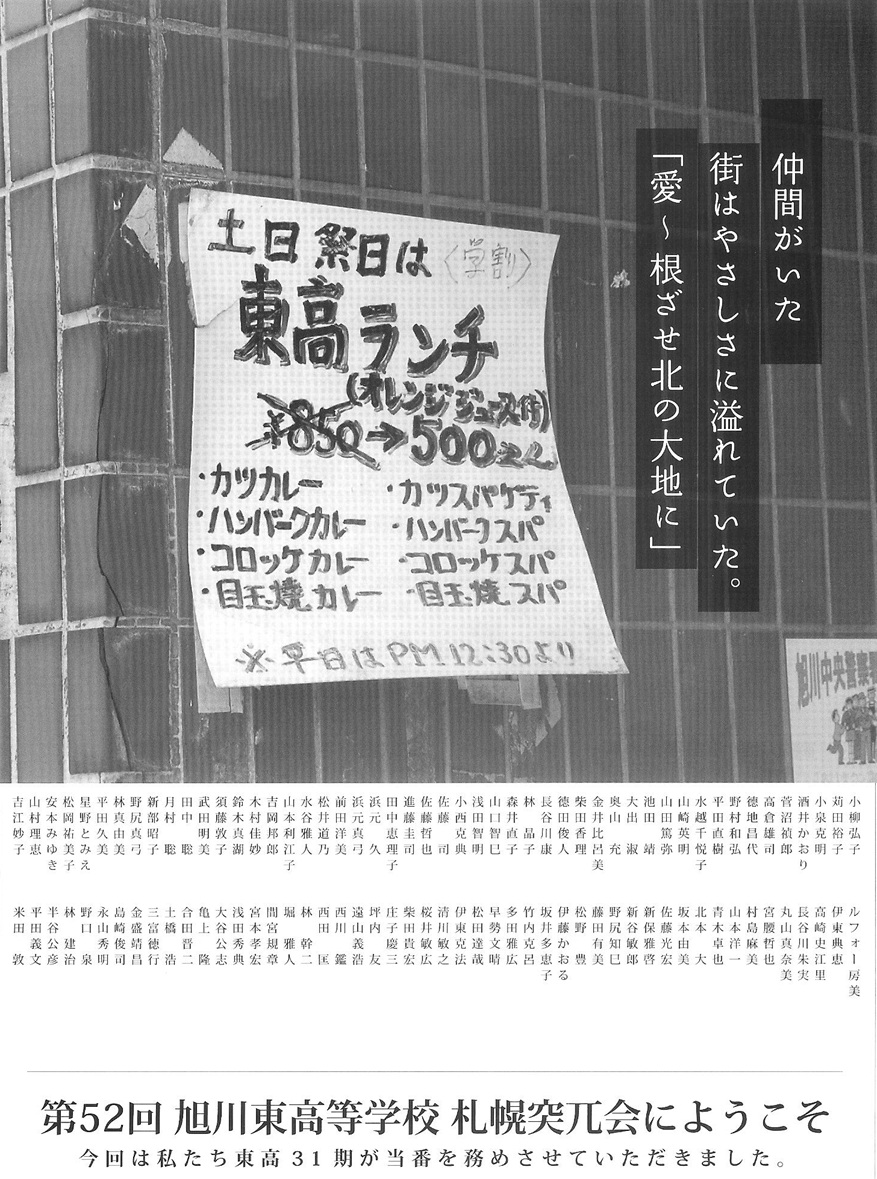 仲間がいた
街はやさしさに溢れていた。
「愛～根ざせ北の大地に」
土日祭日は〈学割〉
東高ランチ
(オレンジジュース付)
¥850→500えん
・カツカレー
・ハンバークカレー
・コロッケカレー
・目玉焼カレー
・カツスパゲティ
・ハンバークスパ
・コロッケスパ
・目玉焼スパ
※平日はPM12:30より
旭川中央警察署
小柳弘子
苅田裕子
小泉克明
酒井かおり
菅沼禎郎
高倉雄司
徳地昌代
野村和弘
平田直樹
水越千悦子
山崎英明
山田篤弥
池田靖
大出淑
奥山充
金井比呂美
柴田香理
徳田俊人
長谷川康
林晶子
森井直子
山口智巳
浅田智明
小西克典
佐藤司
佐藤哲也
進藤圭司
田中恵理子
浜元久
浜元真弓
前田洋美
松井道乃
水谷雅人
山本利江子
吉岡邦郎
木村佳妙
鈴木真湖
須藤敦子
武田明美
田中聡
月村聡
新部昭子
野尻真弓
林真由美
平田久美
星野とみえ
松岡祐美子
安本みゆき
山村理恵
吉江妙子
ルフォー房美
伊東典恵
高崎史江里
長谷川朱実
丸山真奈美
宮腰哲也
村島麻美
山本洋一
青木卓也
北本大
坂本由美
佐藤光宏
新保雅啓
新谷敏郎
野尻知巳
藤田有美
松野豊
伊藤かおる
坂井多恵子
竹内克呂
多田雅広
早勢文晴
松田達哉
伊東克法
清川敏之
桜井敏広
柴田貴宏
庄子慶三
坪内友
遠山義浩
西川鑑
西田匡
林幹二
堀雅人
間宮規章
宮本孝宏
浅田秀典
大谷公志
亀上隆
合田晋二
土橋浩
三富徳行
金盛靖昌
島崎俊司
永山秀明
野口泉
林建治
半谷公彦
平田義文
米田敦
第52回 旭川東高等学校 札幌突兀会にようこそ
今回は私たち東高31期が当番を務めさせていただきました。